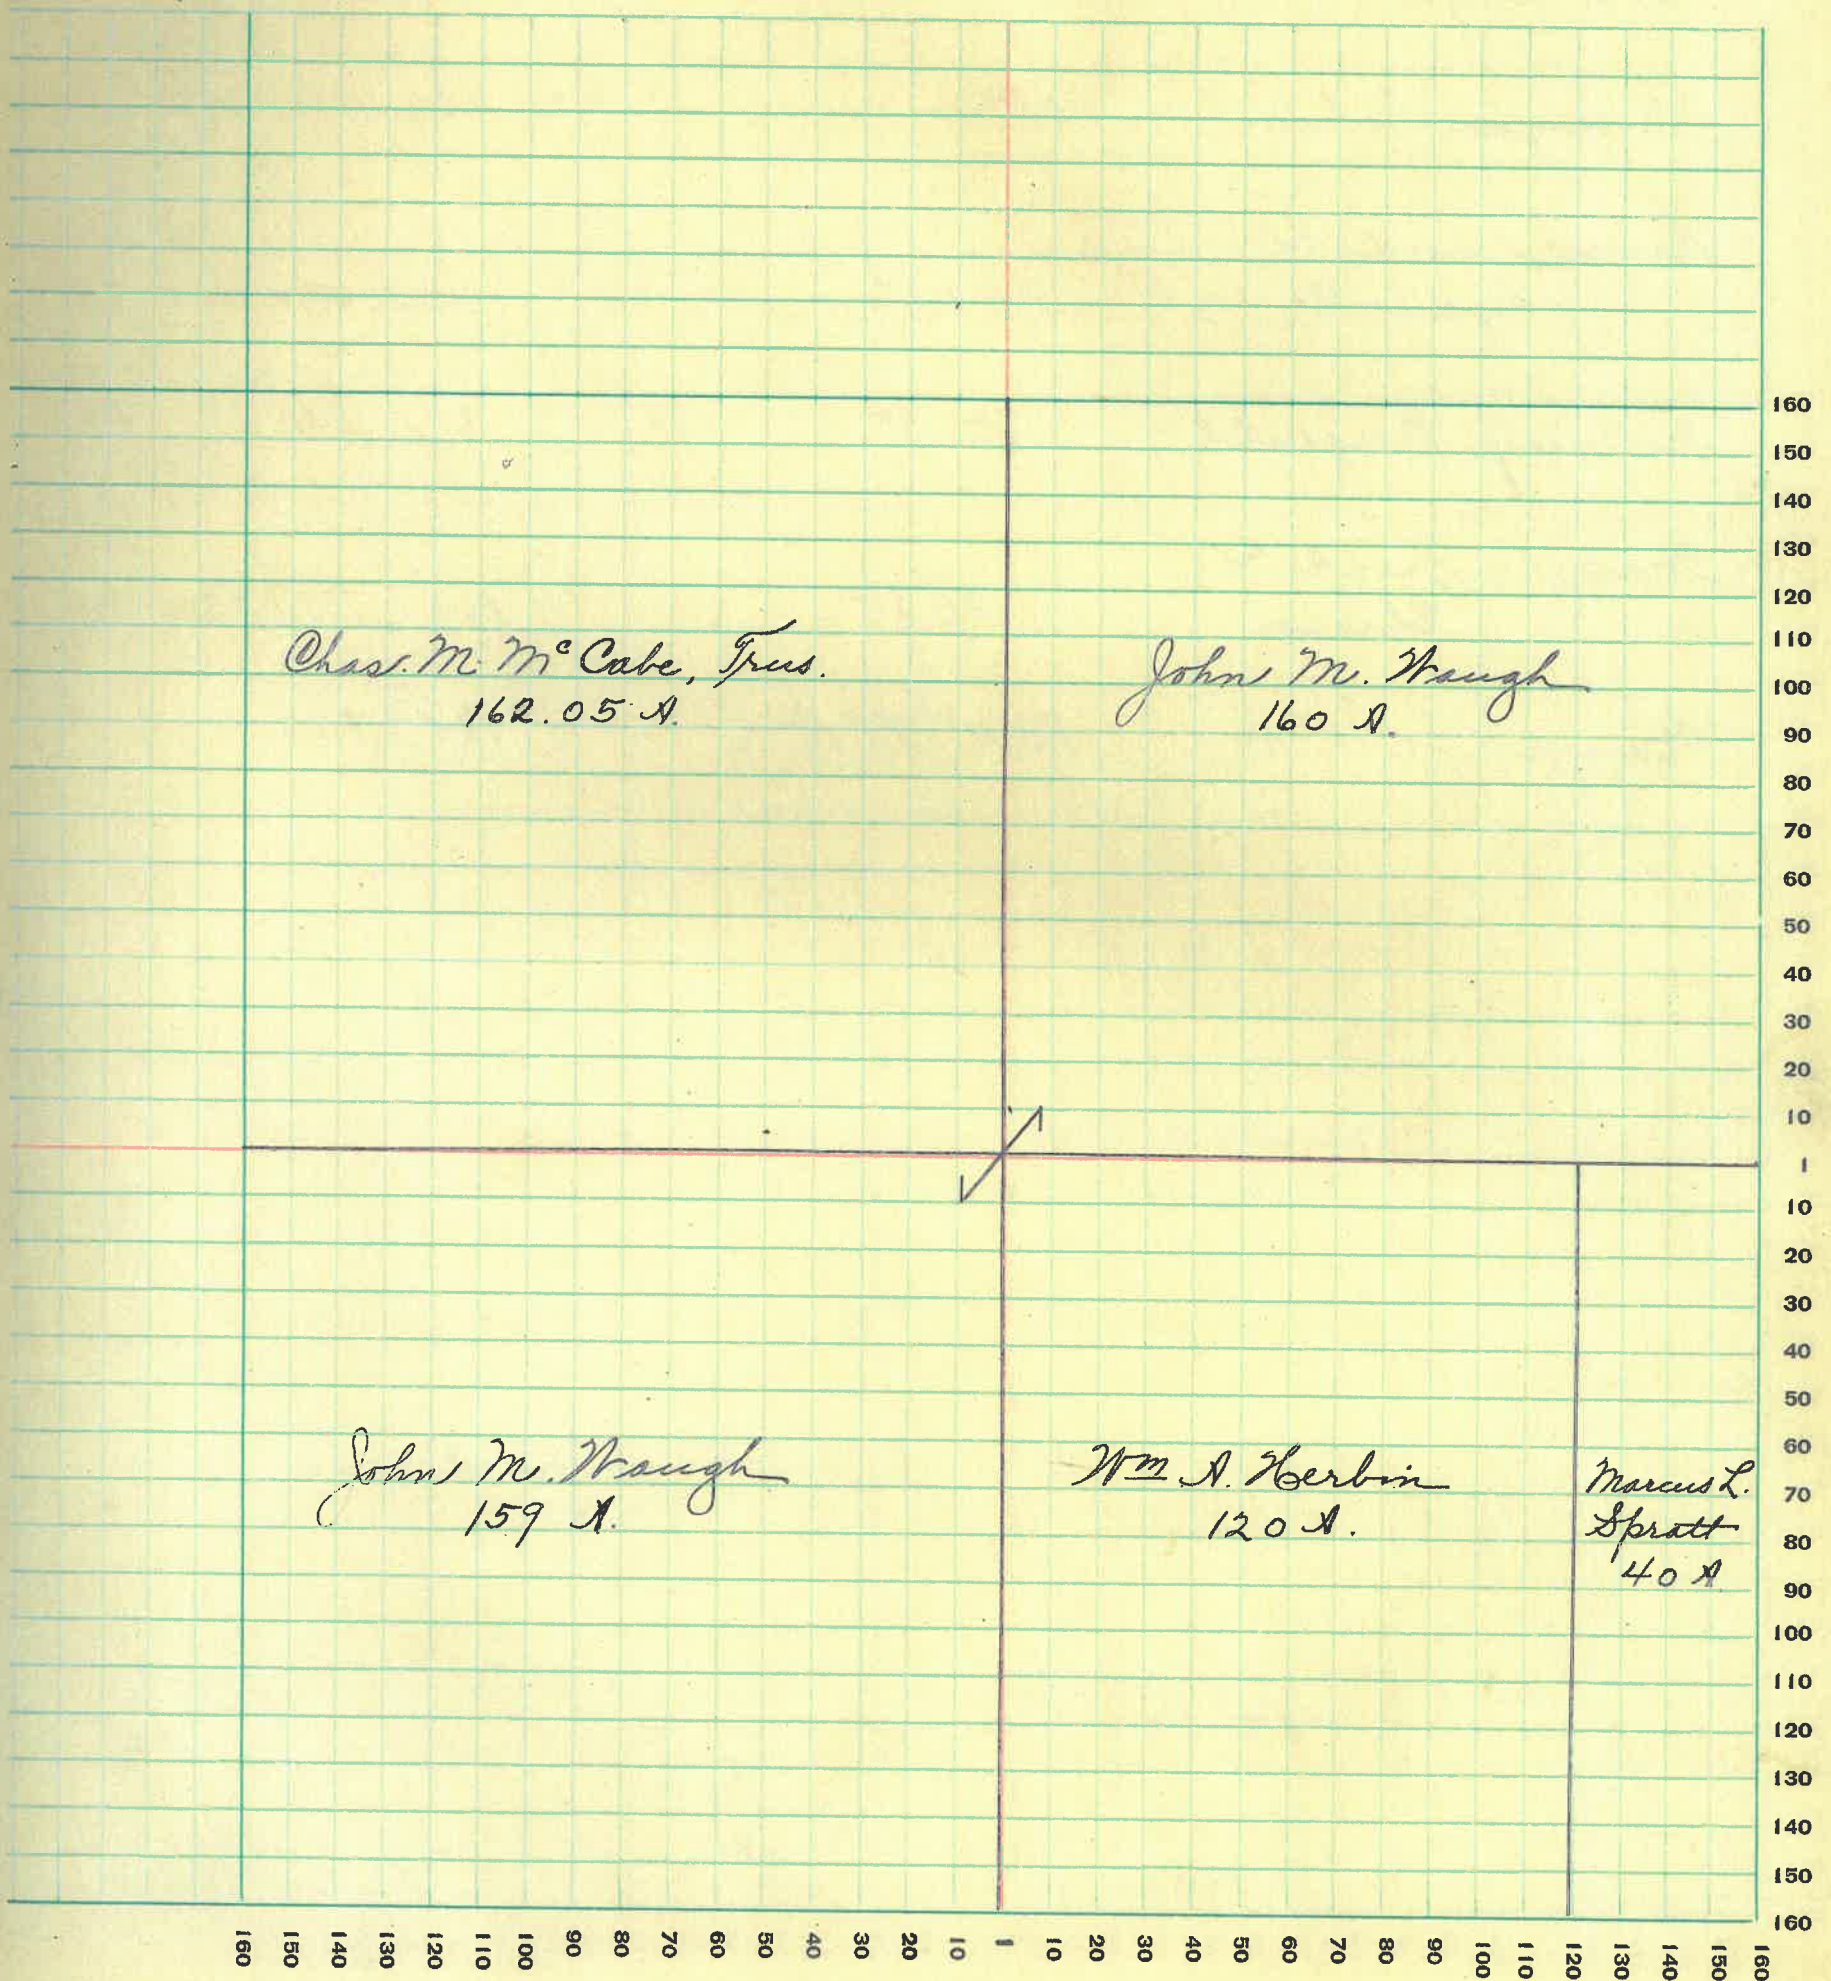 Chas. M. McCabe, Trus.
162.05 A.
John M. Waugh
160 A.
John M. Waugh
159 A.
Wm A. Herbin
120 A.
Marcus L.
Spratt
40 A
160
150
140
130
120
110
100
90
80
70
60
50
40
30
20
10
1
10
20
30
40
50
60
70
80
90
100
110
120
130
140
150
160
160 150 140 130 120 110 100 90 80 70 60 50 40 30 20 10 1 10 20 30 40 50 60 70 80 90 100 110 120 130 140 150 160